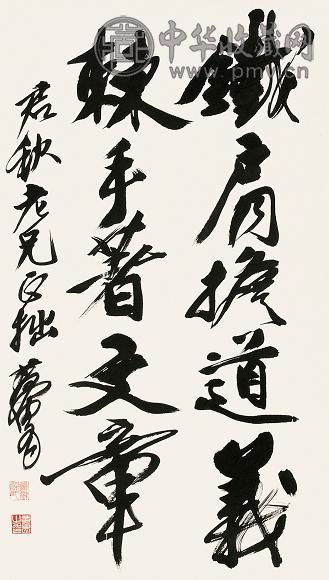 鐵肩擔道義
辣手著文章
君秋老兄正拙
中华收藏网
www.pmv.cn